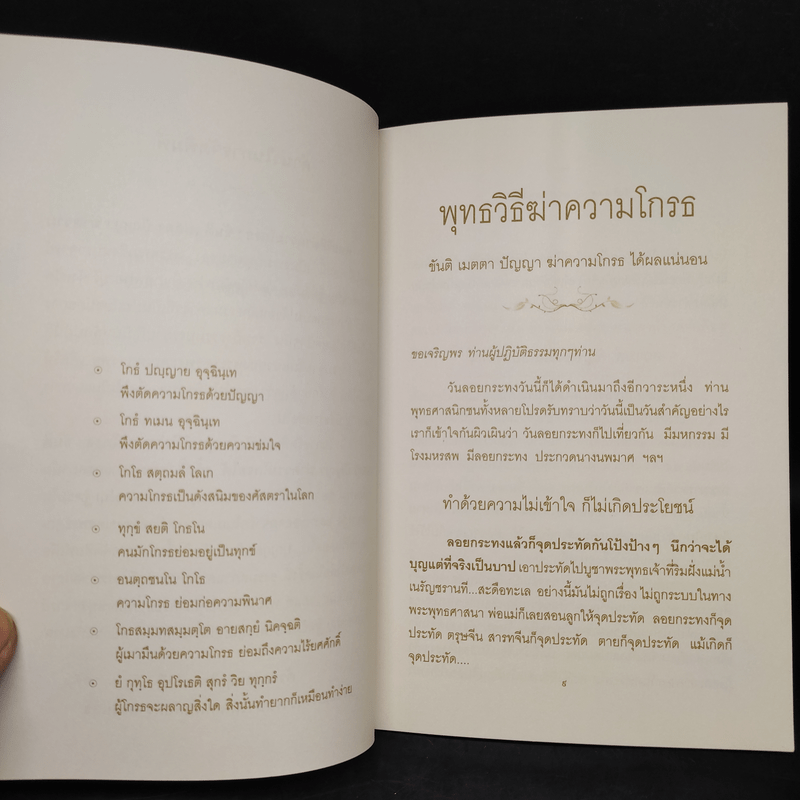 โกธํ ปญฺญาย อุจฺฉินฺเท
พึงตัดความโกรธด้วยปัญญา
โกธํ ทเมน อุจฺฉินฺเท
พึงตัดความโกรธด้วยความข่มใจ
โกโธ สตฺถมลํ โลเก
ความโกรธเป็นดังสนิมของศัสตราในโลก
ทุกฺขํ สยติ โกธโน
คนมักโกรธย่อมอยู่เป็นทุกข์
อนตฺถชนโน โกโธ
ความโกรธ ย่อมก่อความพินาศ
โกธสมฺมทสมฺมตฺโต อายสกฺยํ นิคจฺฉติ
ผู้เมามึนด้วยความโกรธ ย่อมถึงความไร้ยศศักดิ์
ยํ กุทฺโธ อุปโรเธติ สุกรํ วิย ทุกฺกรํ
ผู้โกรธจะผลาญสิ่งใด สิ่งนั้นทำยากก็เหมือนทำง่าย
พุทธวิธีฆ่าความโกรธ
ขันติ เมตตา ปัญญา ฆ่าความโกรธ ได้ผลแน่นอน
ขอเจริญพร ท่านผู้ปฏิบัติธรรมทุกๆท่าน
วันลอยกระทงวันนี้ก็ได้ดำเนินมาถึงอีกวาระหนึ่ง ท่าน
พุทธศาสนิกชนทั้งหลายโปรดรับทราบว่าวันนี้เป็นวันสำคัญอย่างไร
เราก็เข้าใจกันผิวเผินว่า วันลอยกระทงก็ไปเที่ยวกัน มีมหกรรม มี
โรงมหรสพ มีลอยกระทง ประกวดนางนพมาศ ฯลฯ
ทำด้วยความไม่เข้าใจ ก็ไม่เกิดประโยชน์
ลอยกระทงแล้วก็จุดประทัดกันโป้งป้างๆ นึกว่าจะได้
บุญแต่ที่จริงเป็นบาป เอาประทัดไปบูชาพระพุทธเจ้าที่ริมฝั่งแม่น้ำ
เนรัญชรานที...สะดือทะเล อย่างนี้มันไม่ถูกเรื่อง ไม่ถูกระบบในทาง
พระพุทธศาสนา พ่อแม่ก็เลยสอนลูกให้จุดประทัด ลอยกระทงก็จุด
ประทัด ตรุษจีน สารทจีนก็จุดประทัด ตายก็จุดประทัด แม้เกิดก็
จุดประทัด....
๙